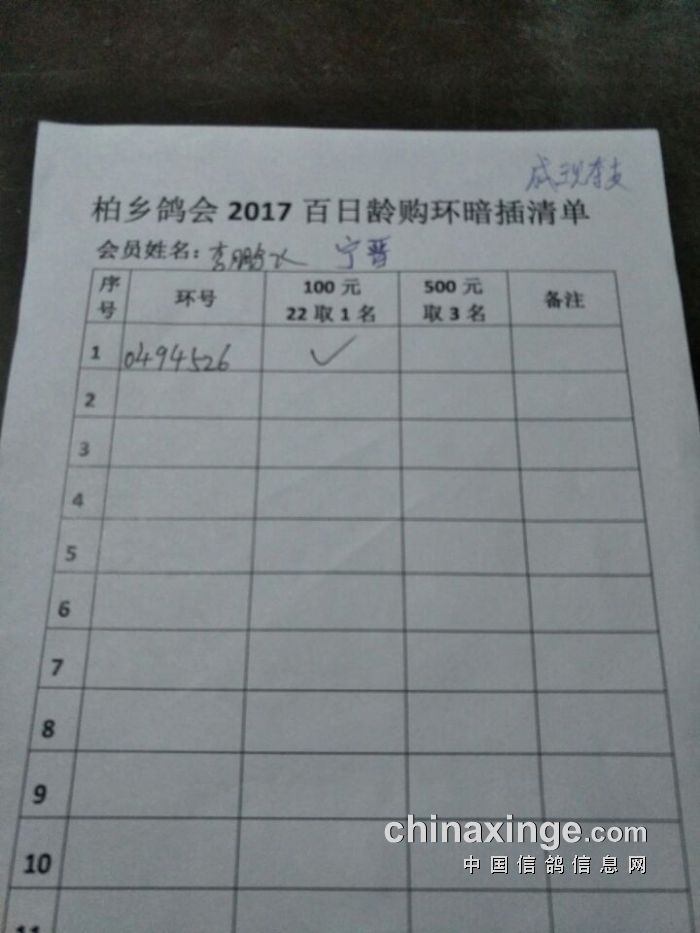 柏乡鸽会 2017 百日龄购环暗插清单
会员姓名：李鹏飞 宁晋
序号 环号 100 元 22 取 1 名 500 元 取 3 名 备注
1 0494526 ✓
2
3
4
5
6
7
8
9
10
11
chinaxinge.com
中国信鸽信息网